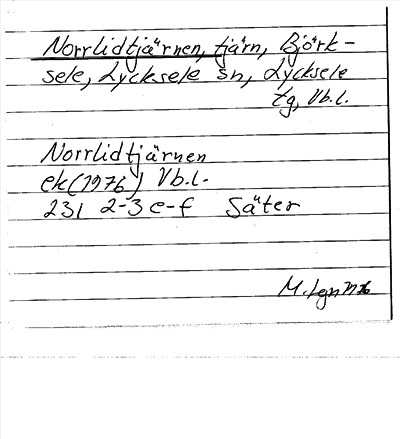 Norrlidtjärnen, tjärn, Björk-
sele, Lycksele sn, Lycksele
tg, Vb.l.
Norrlidtjärnen
ek (1976) Vb.l.
23I 2-3 e-f Säter
M.